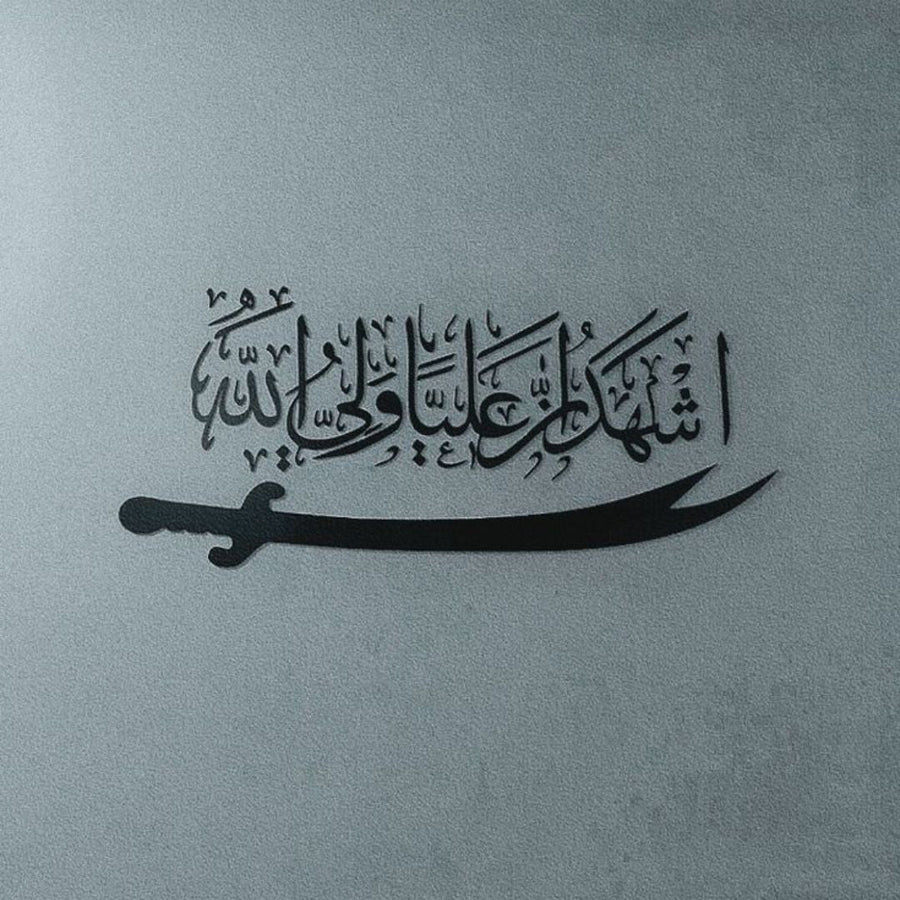 اشهد ان علیا ولی الله